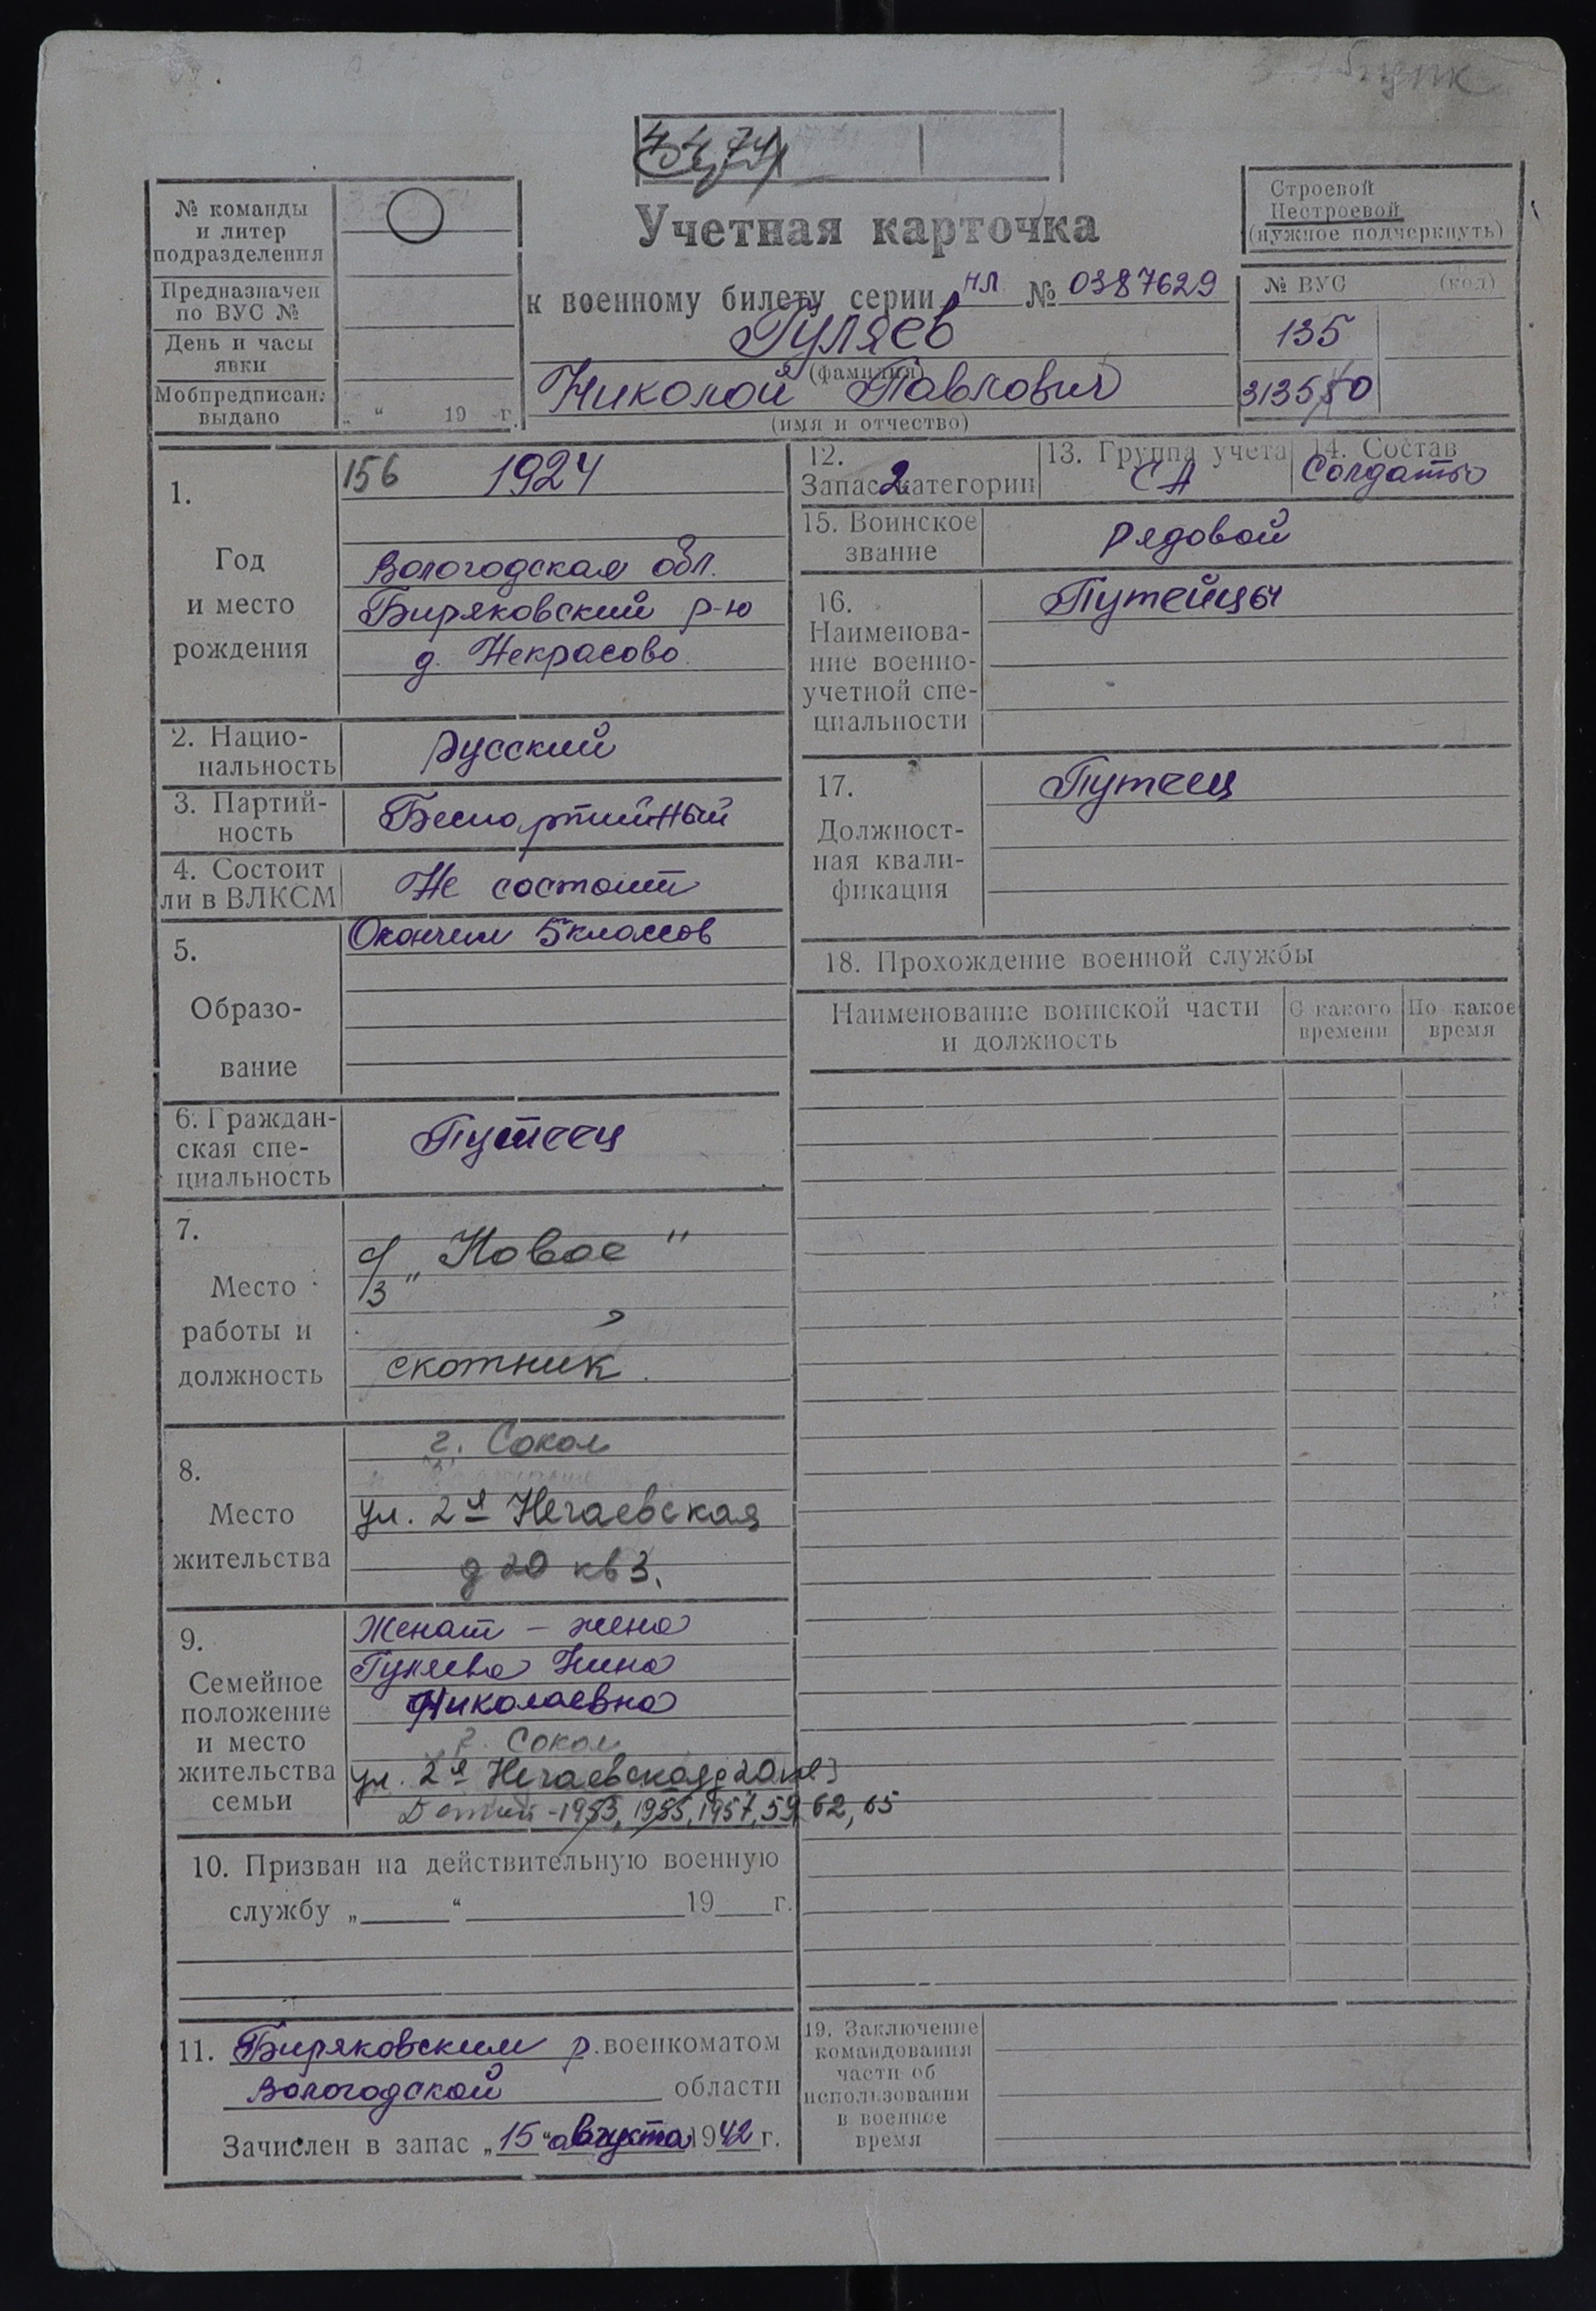 4474
№ команды
и литер
подразделения
Предназначен
по ВУС №
День и часы
явки
Мобпредписан.
выдано
„ “ 19 г.
Учетная карточка
к военному билету серии НЛ № 0387629
Гуляев
(фамилия)
Николай Павлович
(имя и отчество)
Строевой
Нестроевой
(нужное подчеркнуть)
№ ВУС (код)
135
1. Год и место рождения
156 1924
Вологодская обл.
Биряковский р-н
д. Некрасово
2. Нацио-
нальность
Русский
3. Партий-
ность
Беспартийный
4. Состоит
ли в ВЛКСМ
Не состоит
5.
Образо-
вание
Окончил 5 классов
6. Граждан-
ская спе-
циальность
Путеец
7.
Место
работы и
должность
с/з „Новое"
скотник.
8.
Место
жительства
г. Сокол
ул. 2я Нечаевская
д 20 кв 3.
9.
Семейное
положение
и место
жительства
семьи
Женат – жена
Гуляева Нина
Николаевна
г. Сокол
ул. 2я Нечаевская д 20 кв 3
Детей - 1953, 1955, 1957, 59, 62, 65
10. Призван на действительную военную
службу „ “ 19 г.
11. Биряковским р. военкоматом
Вологодской области
Зачислен в запас „15“ августа 1942 г.
12.
Запас 2 категории
13. Группа учета
СА
14. Состав
Солдаты
15. Воинское
звание
Рядовой
16.
Наименова-
ние военно-
учетной спе-
циальности
Путейцы
17.
Должност-
ная квали-
фикация
Путеец
18. Прохождение военной службы
Наименование воинской части
и должность
С какого
времени
По какое
время
19. Заключение
командования
части об
использовании
в военное
время